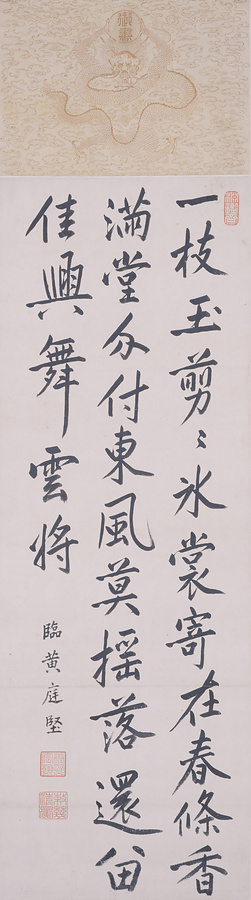 一枝玉剪〻氷裳寄在春條香
滿堂分付東風莫揺落還留
佳興舞雲將
臨黄庭堅